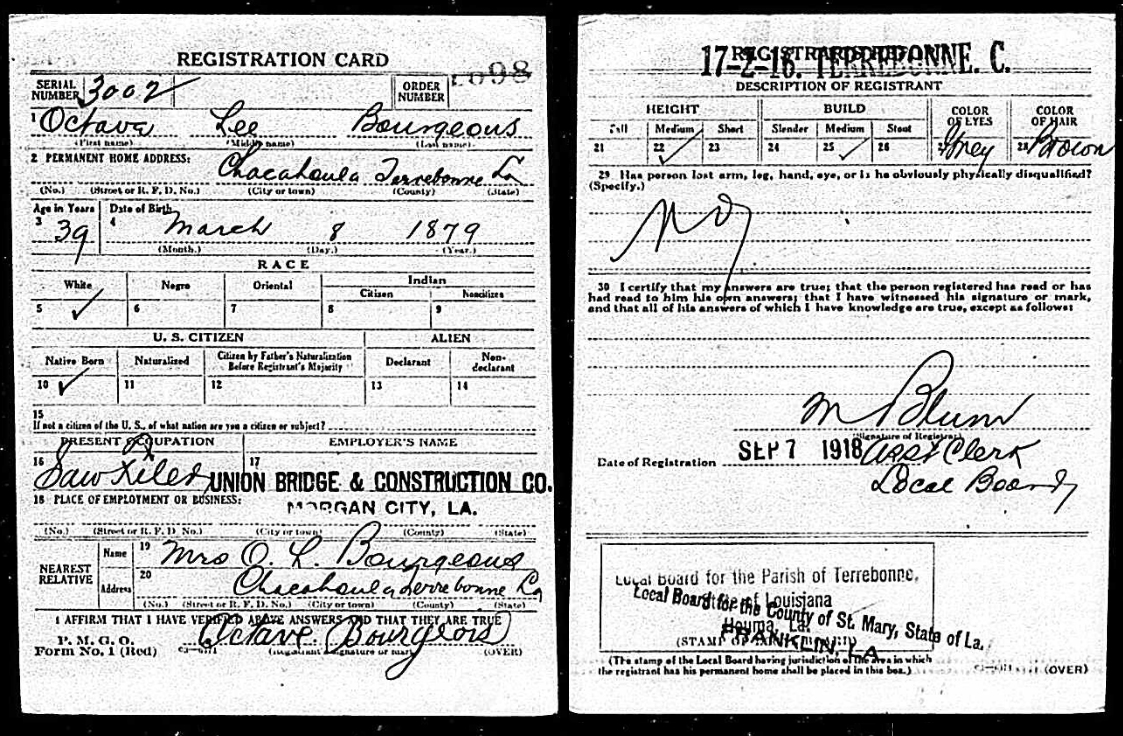 REGISTRATION CARD
SERIAL NUMBER 3002
ORDER NUMBER 98
1 Octave Lee Bourgeous
(First name) (Middle name) (Last name)
2 PERMANENT HOME ADDRESS:
Chacahoula Terrebonne La
(No.) (Street or R. F. D. No.) (City or town) (County) (State)
Age in Years Date of Birth
3 39 4 March 8 1879
(Month.) (Day.) (Year.)
RACE
White Negro Oriental Indian
Citizen Noncitizen
5 ✓ 6 7 8 9
U. S. CITIZEN ALIEN
Native Born Naturalized Citizen by Father's Naturalization Before Registrant's Majority Declarant Non-declarant
10 ✓ 11 12 13 14
15
If not a citizen of the U. S., of what nation are you a citizen or subject?
PRESENT OCCUPATION EMPLOYER'S NAME
16 Saw Filer 17 UNION BRIDGE & CONSTRUCTION CO.
18 PLACE OF EMPLOYMENT OR BUSINESS:
MORGAN CITY, LA.
(No.) (Street or R. F. D. No.) (City or town) (County) (State)
NEAREST RELATIVE
Name 19 Mrs O. L. Bourgeous
Address 20 Chacahoula Terrebonne La
(No.) (Street or R. F. D. No.) (City or town) (County) (State)
I AFFIRM THAT I HAVE VERIFIED ABOVE ANSWERS AND THAT THEY ARE TRUE
P. M. G. O.
Form No. 1 (Red)
Octave Bourgeois
(Registrant's signature or mark) (OVER)
REGISTRAR'S REPORT
17-2-16. TERREBONNE. C.
DESCRIPTION OF REGISTRANT
HEIGHT BUILD COLOR OF EYES COLOR OF HAIR
Tall Medium Short Slender Medium Stout
21 22 ✓ 23 24 25 ✓ 26 27 Grey 28 Brown
29 Has person lost arm, leg, hand, eye, or is he obviously physically disqualified?
(Specify.)
No
30 I certify that my answers are true; that the person registered has read or has
had read to him his own answers; that I have witnessed his signature or mark,
and that all of his answers of which I have knowledge are true, except as follows:
M Blum
(Signature of Registrar)
Date of Registration SEP 7 1918 Asst Clerk
Local Board
Local Board for the Parish of Terrebonne,
State of Louisiana
Houma, La.
Local Board for the County of St. Mary, State of La.
FRANKLIN, LA
(STAMP OF LOCAL BOARD)
(The stamp of the Local Board having jurisdiction of the area in which
the registrant has his permanent home shall be placed in this box.)
(OVER)